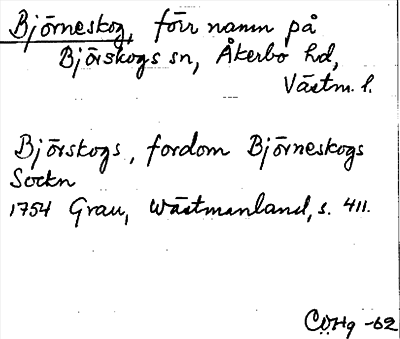 Björneskog, förr namn på
Björskogs sn, Åkerbo hd,
Västm. l.
Björskogs, fordom Björneskogs
Sockn
1754 Grau, Wästmanland, s. 411.
COHg -62